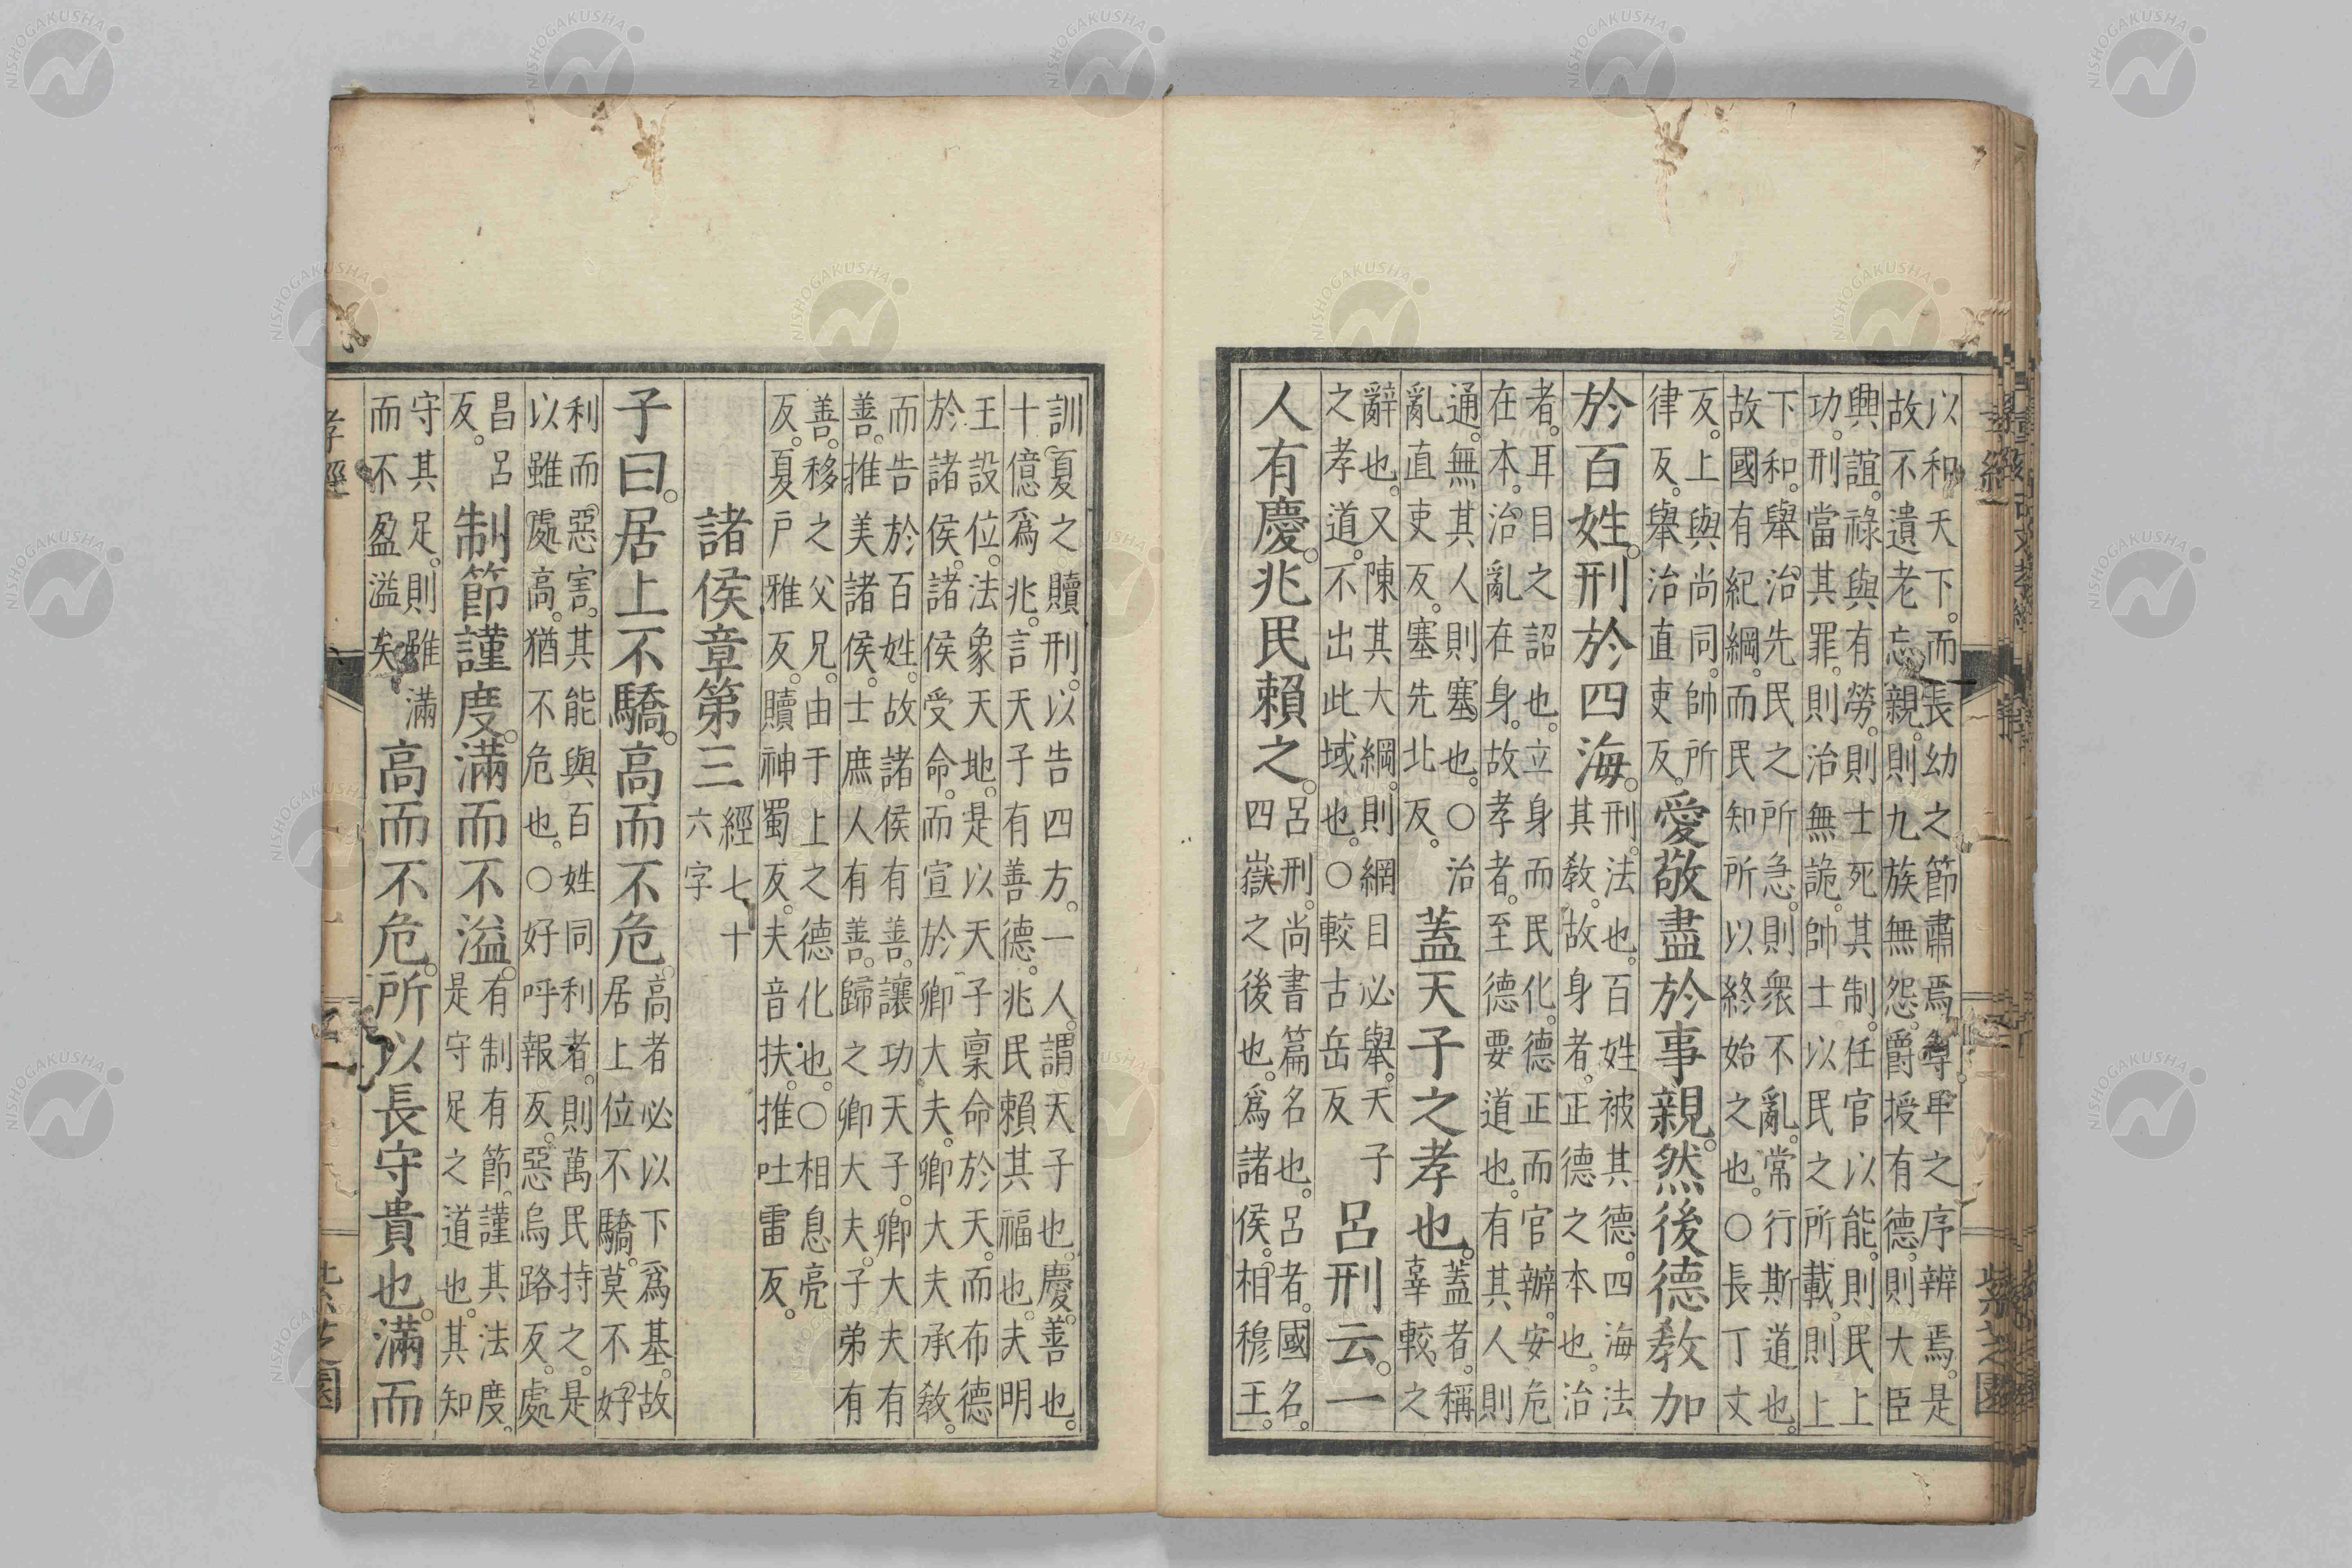 以和天下。而長幼之節肅焉。尊卑之序辨焉。是
故不遺老忘親。則九族無怨。爵授有德。則大臣
興誼。祿與有勞。則士死其制。任官以能。則民上
功。刑當其罪。則治無詭。帥士以民之所載。則上
下和。舉治先民之所急。則衆不亂。常行斯道也。
故國有紀綱。而民知所以終始之也。○長丁丈
反。上與尚同。帥所
律反。舉治直吏反。
愛敬盡於事親。然後德敎加
於百姓。刑於四海。
刑。法也。百姓被其德。四海法
其敎。故身者。正德之本也。治
者。耳目之詔也。立身而民化。德正而官辦。安危
在本。治亂在身。故孝者。至德要道也。有其人則
通。無其人則塞也。○治
亂直吏反。塞先北反。
蓋天子之孝也。
蓋者。稱
辜較之
辭也。又陳其大綱。則綱目必舉。天子
之孝道。不出此域也。○較古岳反
呂刑云。一
人有慶。兆民賴之。
呂刑。尚書篇名也。呂者。國名。
四嶽之後也。爲諸侯。相穆王。
訓夏之贖刑。以告四方。一人。謂天子也。慶。善也。
十億爲兆。言天子有善德。兆民賴其福也。夫明
王設位。法象天地。是以天子稟命於天。而布德
於諸侯。諸侯受命。而宣於卿大夫。卿大夫承敎。
而告於百姓。故諸侯有善。讓功天子。卿大夫有
善。推美諸侯。士庶人有善。歸之卿大夫。子弟有
善。移之父兄。由于上之德化也。○相息亮
反。夏戶雅反。贖神蜀反。夫音扶。推吐雷反。
諸侯章第三
經七十
六字
子曰。居上不驕。高而不危。
高者必以下爲基。故
居上位不驕。莫不好
利而惡害。其能與百姓同利者。則萬民持之。是
以雖處高。猶不危也。○好呼報反。惡烏路反。處
昌呂
反。
制節謹度。滿而不溢。
有制有節。謹其法度。
是守足之道也。其知
守其足。則雖滿
而不盈溢矣
高而不危。所以長守貴也。滿而
孝經
紫芝園
NISHOGAKUSHA